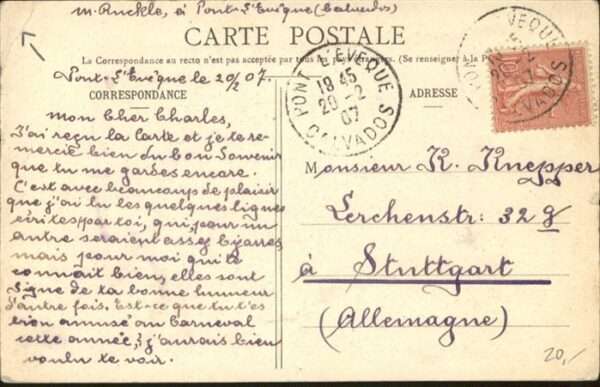 M. Ruckle, à Pont-l'Evêque (Calvados)
CARTE POSTALE
La Correspondance au recto n'est pas acceptée par tous les pays étrangers. (Se renseigner à la Poste)
Pont-l'Evêque le 20/2 07.
CORRESPONDANCE
Mon Cher Charles,
J'ai reçu la Carte et je te re-
mercie bien du bon Souvenir
que tu me gardes encore.
C'est avec beaucoups de plaisir
que j'ai lu les quelques lignes
écrites par toi, qui, pour un
autre seraient assez bizarres
mais pour moi qui te
connait bien, elles sont
signe de ta bonne humeur
d'autre fois. Est-ce que tu t'es
bien amusé au Carneval
cette année? j'aurais bien
voulu te voir.
PONT-L'EVEQUE
18 45
20 -2
07
CALVADOS
ADRESSE
Monsieur K. Knepper
Lerchenstr: 32 g
à Stuttgart
(Allemagne)
EVEQUE
CALVADOS
10
20,-